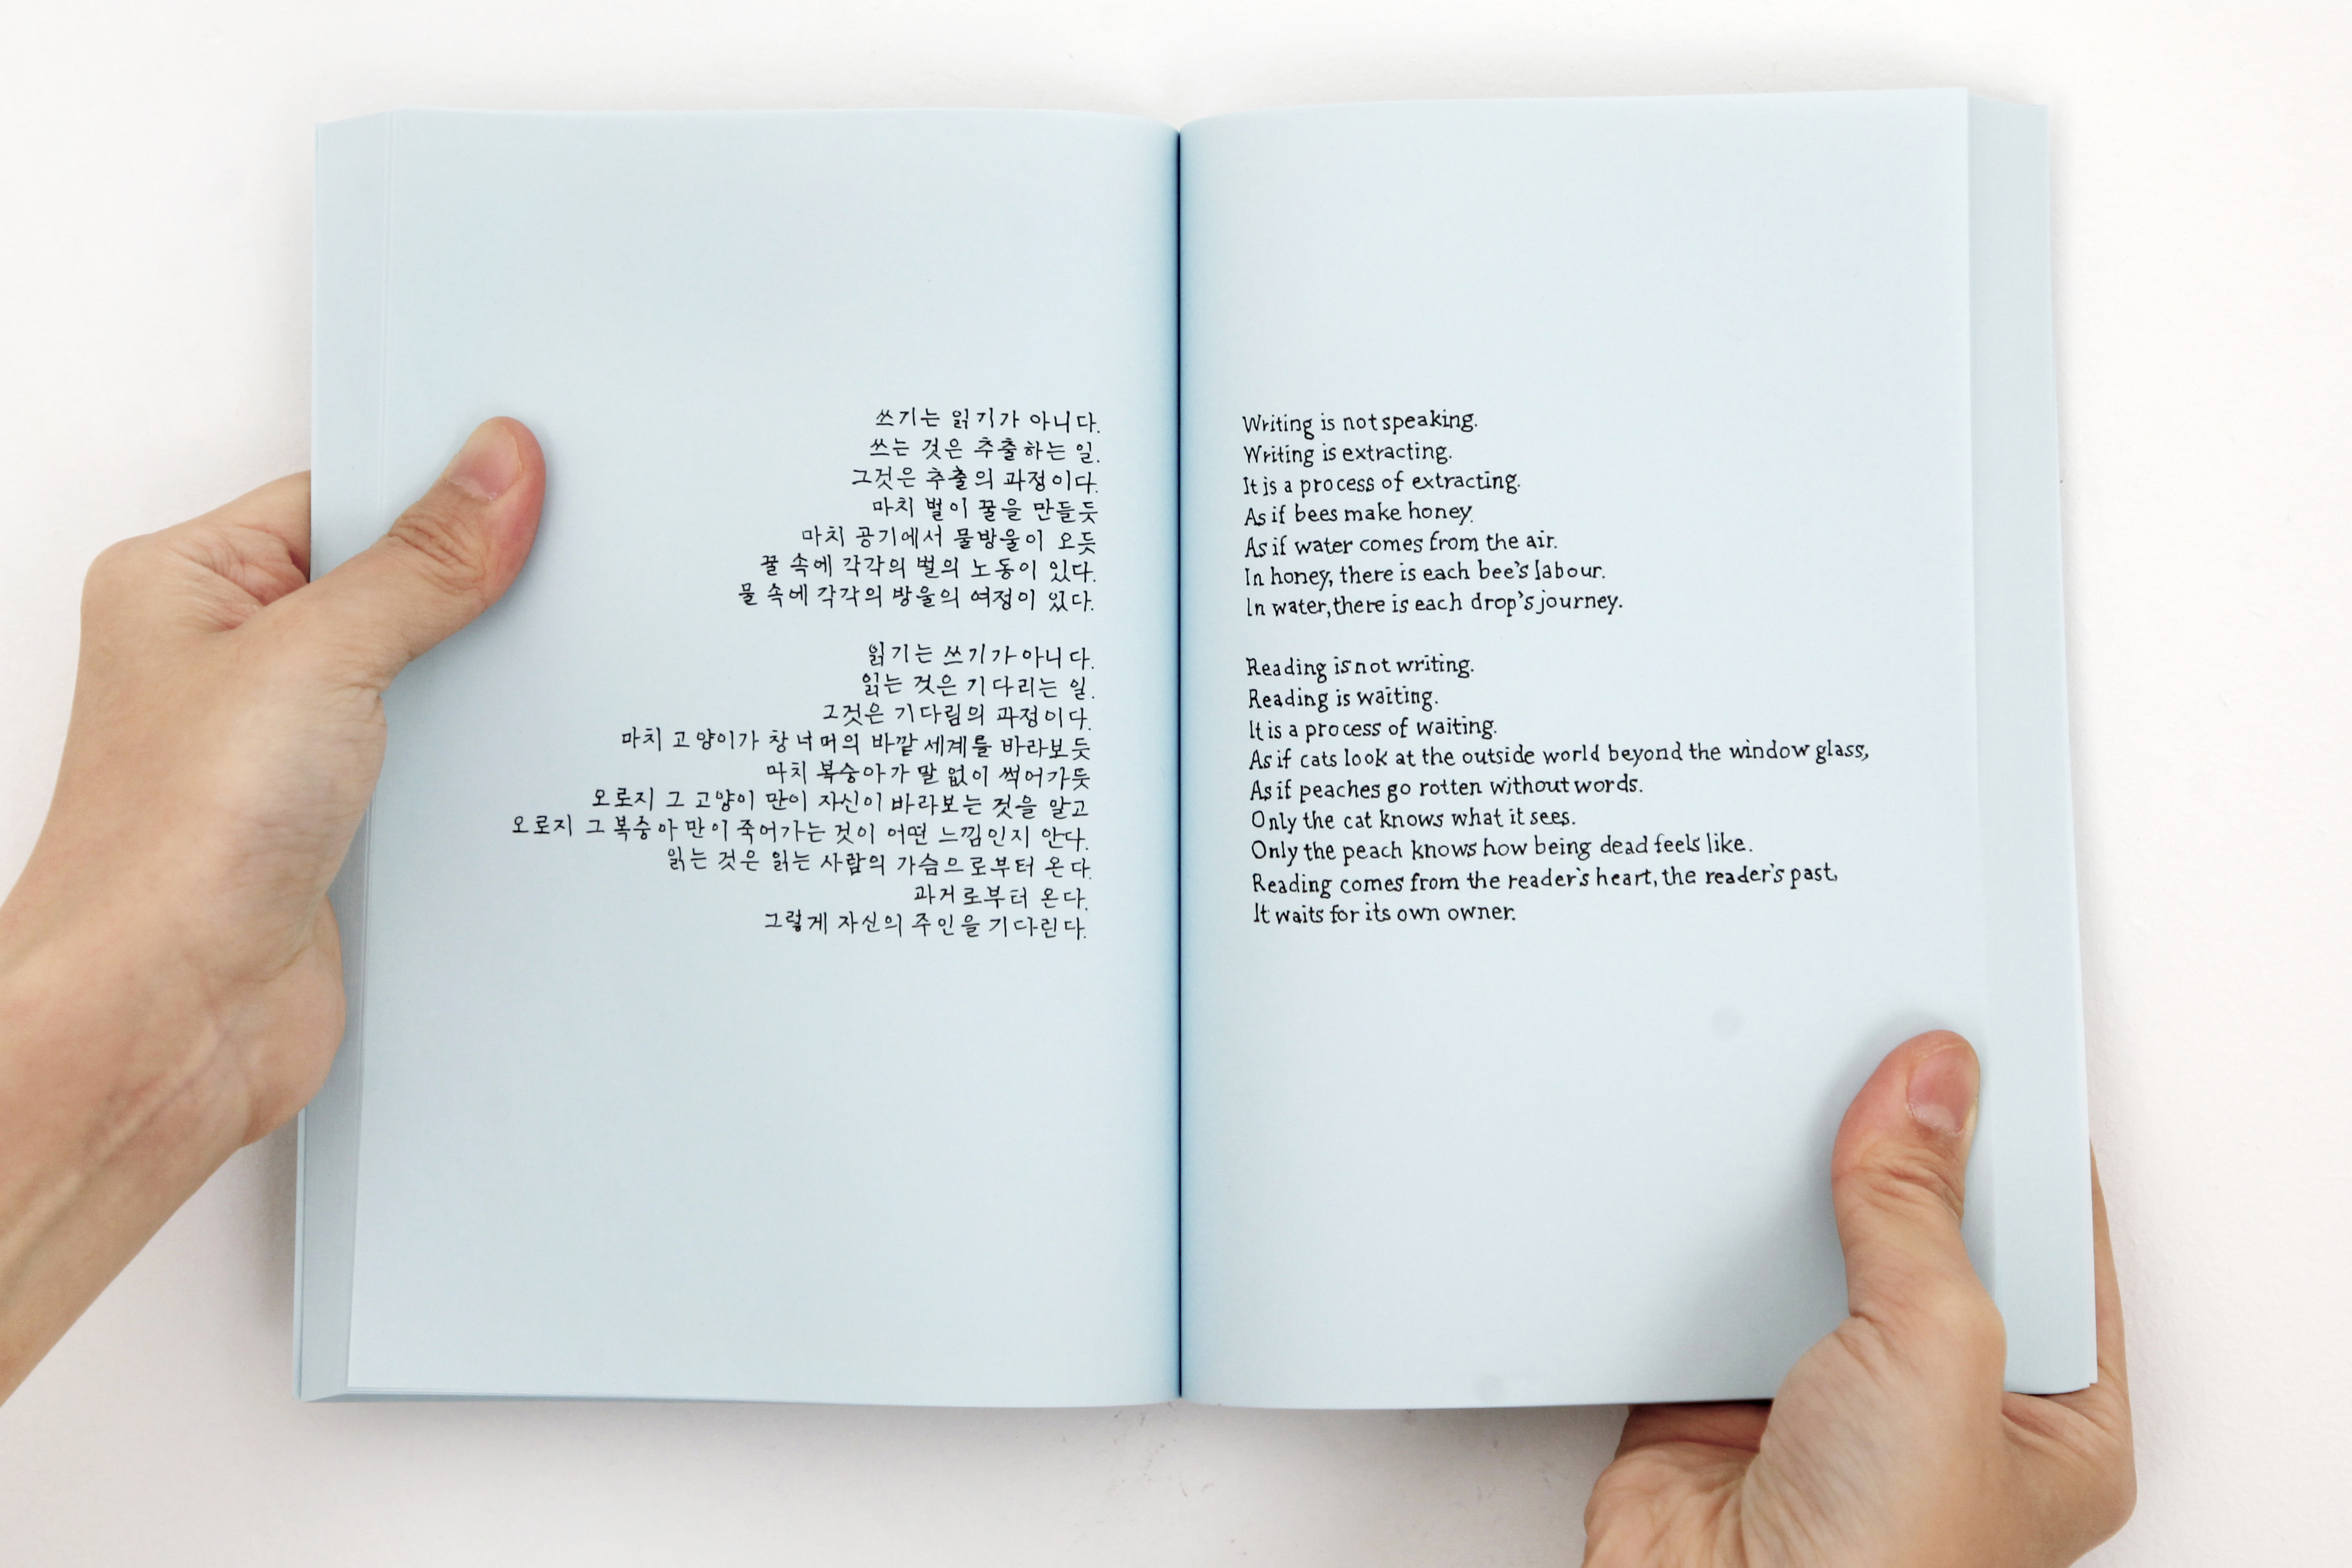 쓰기는 읽기가 아니다.
쓰는 것은 추출하는 일.
그것은 추출의 과정이다.
마치 벌이 꿀을 만들듯
마치 공기에서 물방울이 오듯
꿀 속에 각각의 벌의 노동이 있다.
물 속에 각각의 방울의 여정이 있다.
읽기는 쓰기가 아니다.
읽는 것은 기다리는 일.
그것은 기다림의 과정이다.
마치 고양이가 창 너머의 바깥 세계를 바라보듯
마치 복숭아가 말 없이 썩어가듯
오로지 그 고양이 만이 자신이 바라보는 것을 알고
오로지 그 복숭아 만이 죽어가는 것이 어떤 느낌인지 안다.
읽는 것은 읽는 사람의 가슴으로부터 온다.
과거로부터 온다.
그렇게 자신의 주인을 기다린다.
Writing is not speaking.
Writing is extracting.
It is a process of extracting.
As if bees make honey.
As if water comes from the air.
In honey, there is each bee's labour.
In water, there is each drop's journey.
Reading is not writing.
Reading is waiting.
It is a process of waiting.
As if cats look at the outside world beyond the window glass,
As if peaches go rotten without words.
Only the cat knows what it sees.
Only the peach knows how being dead feels like.
Reading comes from the reader's heart, the reader's past,
It waits for its own owner.